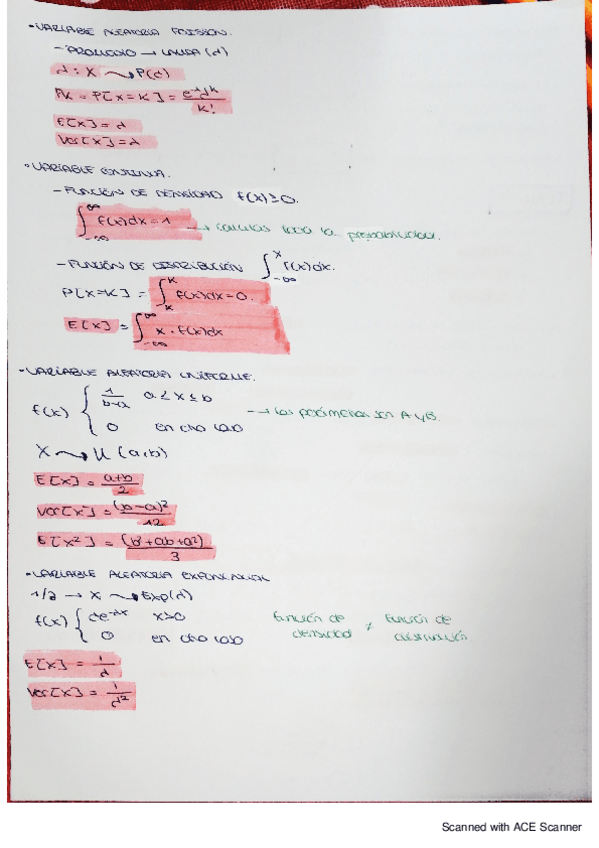 • VARIABLE ALEATORIA POISSON.
– PROMEDIO → LANDA (λ)
λ : X ⤳ P(λ)
Pk = P[X=K] = e^-λ λ^k / k!
E[X] = λ
Var[X] = λ
• VARIABLE CONTINUA.
– FUNCIÓN DE DENSIDAD f(x) ≥ 0.
∫_-∞^∞ f(x)dx = 1 → calculas toda la probabilidad.
– FUNCIÓN DE DISTRIBUCIÓN ∫_-∞^x f(x)dx.
P[X=K] = ∫_K^K f(x)dx = 0.
E[X] = ∫_-∞^∞ x · f(x)dx
• VARIABLE ALEATORIA UNIFORME.
f(x) { 1/(b-a) a ≤ x ≤ b
0 en otro caso → Los parámetros son A y B.
X ⤳ U (a,b)
E[X] = (a+b)/2
Var[X] = (b-a)²/12
E[X²] = (b²+ab+a²)/3
• VARIABLE ALEATORIA EXPONENCIAL
1/λ → X ⤳ Exp(λ)
f(x) { λe^-λx x>0
0 en otro caso
Función de densidad ≠ Función de distribución
E[X] = 1/λ
Var[X] = 1/λ²
Scanned with ACE Scanner